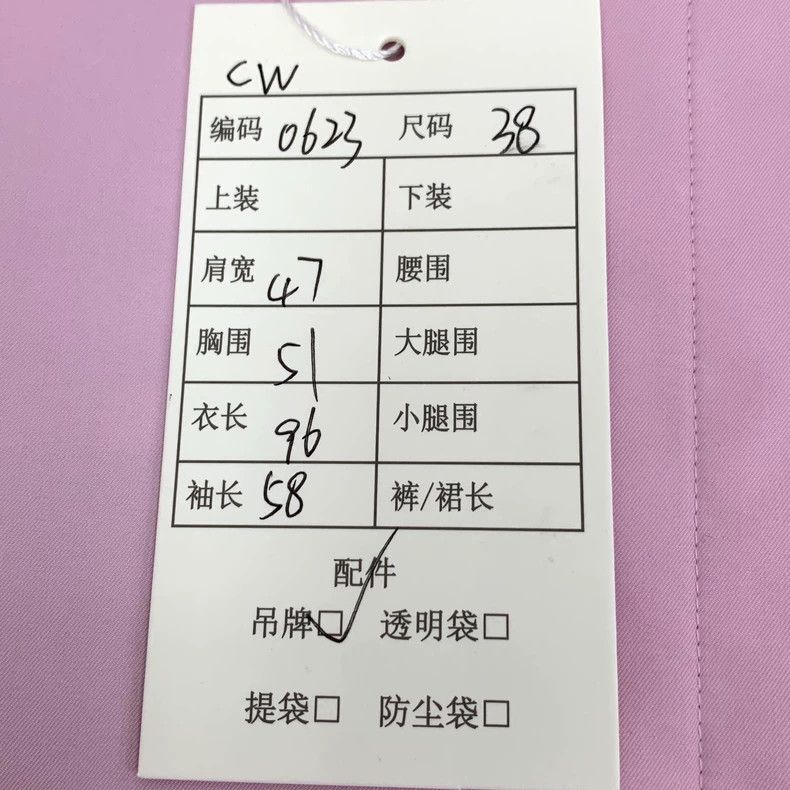 CW
编码 0623 尺码 38
上装 下装
肩宽 47 腰围
胸围 51 大腿围
衣长 96 小腿围
袖长 58 裤/裙长
配件
吊牌☑ 透明袋□
提袋□ 防尘袋□